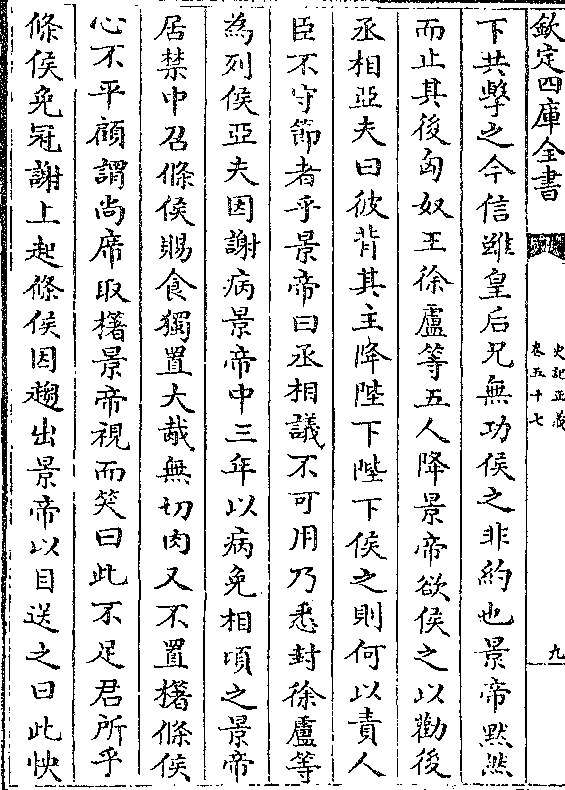 欽定四庫全書
史記正義
卷五十七
九
下共擊之今信雖皇后兄無功侯之非約也景帝默然
而止其後匈奴王徐盧等五人降景帝欲侯之以勸後
丞相亞夫曰彼背其主降陛下陛下侯之則何以責人
臣不守節者乎景帝曰丞相議不可用乃悉封徐盧等
為列侯亞夫因謝病景帝中三年以病免相頃之景帝
居禁中召條侯賜食獨置大胾無切肉又不置櫡條侯
心不平顧謂尚席取櫡景帝視而笑曰此不足君所乎
條侯免冠謝上起條侯因趨出景帝以目送之曰此怏